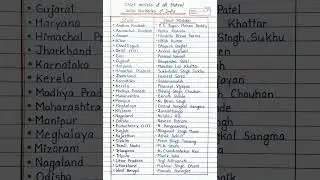 Chief minister of all States/
Union territories of India
State
Chief Minister
Andhra Pradesh
Y.S. Jagan Mohan Reddy
Arunachal Pradesh
Pema Khandu
Assam
Himanta Biswa Sarma
Bihar
Nitish Kumar
Chhattisgarh
Bhupesh Baghel
Delhi (UT)
Arvind Kejriwal
Goa
Pramod Sawant
Gujarat
Bhupendra Patel
Haryana
Manohar Lal Khattar
Himachal Pradesh
Sukhvinder Singh Sukhu
Jharkhand
Hemant Soren
Karnataka
Kerela
Pinarayi Vijayan
Madhya Pradesh
Shivraj Singh Chouhan
Maharashtra
Eknath Shinde
Manipur
N. Biren Singh
Meghalaya
Conrad Kongkal Sangma
Mizoram
Zoramthanga
Nagaland
Neiphiu Rio
Odisha
Naveen Patnaik
Puducherry (UT)
N. Rangaswamy
Punjab
Bhagwant Singh Mann
Rajasthan
Ashok Gehlot
Sikkim
Prem Singh Tamang
Tamil Nadu
M.K. Stalin
Telangana
K. Chandrashekar Rao
Tripura
Manik Saha
Uttar Pradesh
Yogi Adityanath
Uttarakhand
Pushkar Singh Dhami
West Bengal
Mamata Banerjee